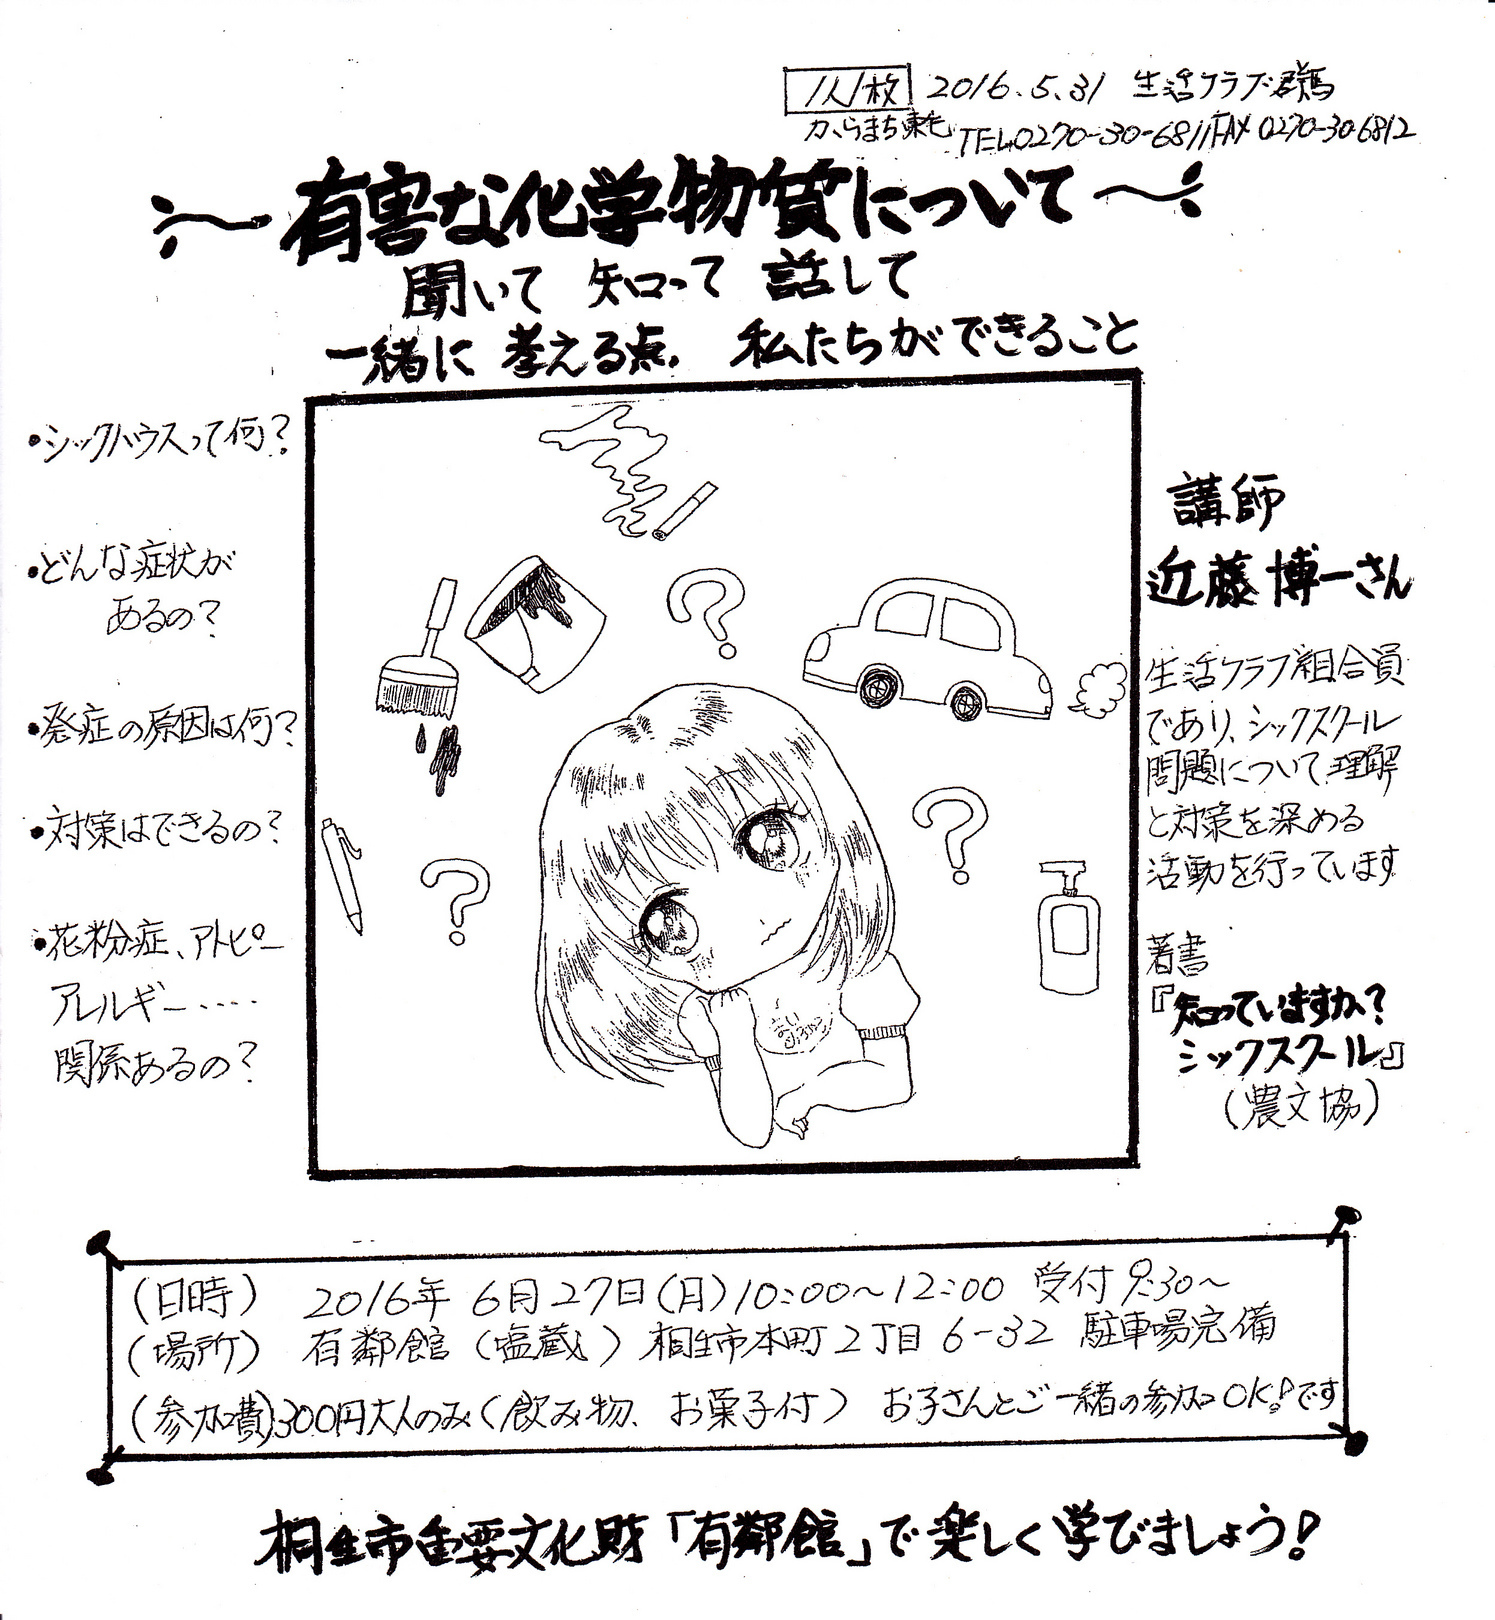 1人1枚 2016.5.31 生活クラブ群馬
からまち東毛 TEL0270-30-6811 FAX 0270-30-6812
有害な化学物質について
聞いて 知って 話して
一緒に 考える点. 私たちができること
・シックハウスって何?
・どんな症状が
あるの?
・発症の原因は何?
・対策はできるの?
・花粉症、アトピー
アレルギー‥‥
関係あるの?
講師
近藤 博一さん
生活クラブ組合員
であり、シックスクール
問題について、理解
と対策を深める
活動を行っています
著書
『知っていますか?
シックスクール』
(農文協)
(日時) 2016年 6月27日(月)10:00〜12:00 受付 9:30〜
(場所) 有鄰館 (塩蔵) 桐生市本町2丁目6-32 駐車場完備
(参加費)300円大人のみ(飲み物、お菓子付) お子さんとご一緒の参加OK!です
桐生市重要文化財「有鄰館」で楽しく学びましょう!